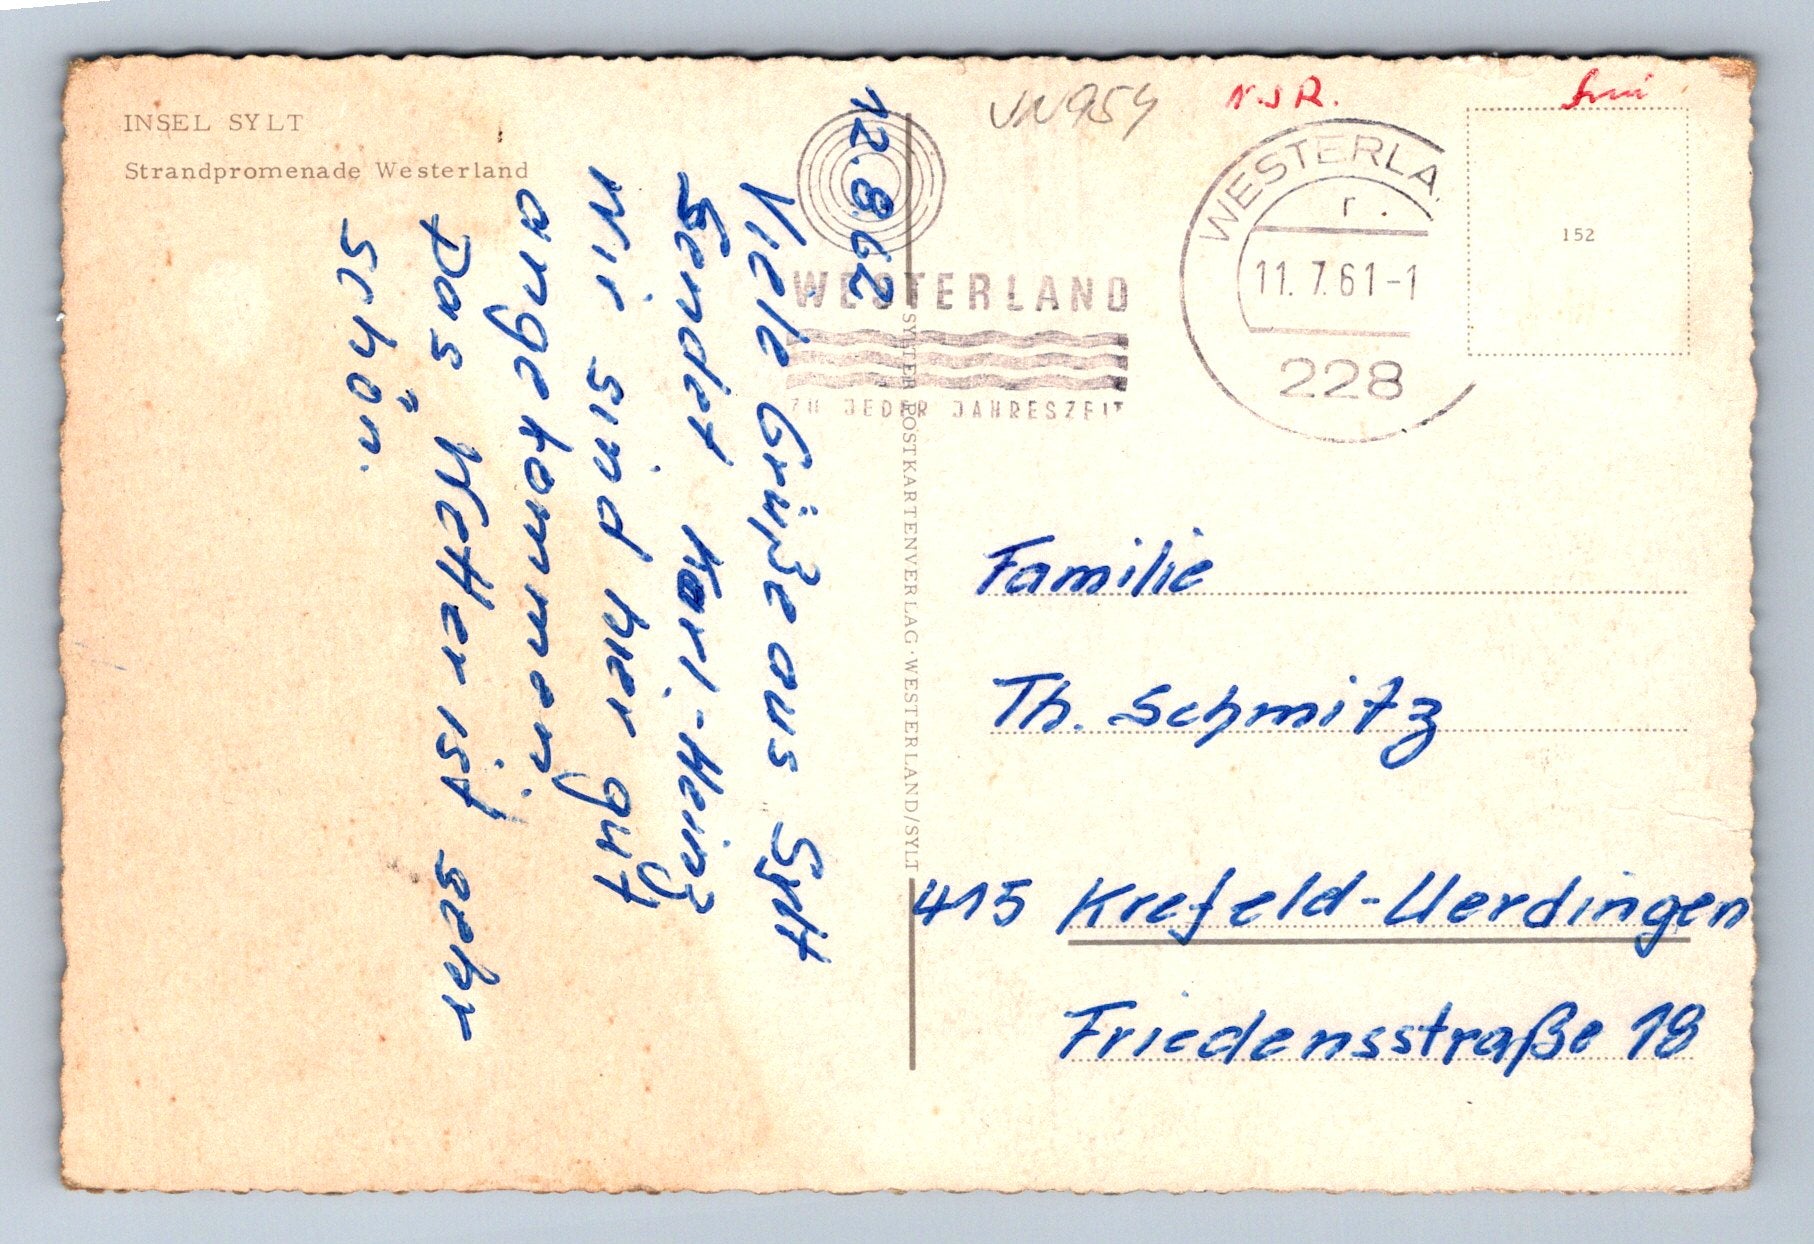 INSEL SYLT
Strandpromenade Westerland
12.8.62
Viele Grüße aus Sylt
Sendet Karl-Heinz
Wir sind hier gut
angekommen
Das Wetter ist sehr
schön.
WESTERLAND
ZU JEDER JAHRESZEIT
SYLTER POSTKARTENVERLAG · WESTERLAND/SYLT
VN954
N.S.R.
WESTERLA
11.7.61-1
228
152
Familie
Th. Schmitz
415 Krefeld-Uerdingen
Friedensstraße 18